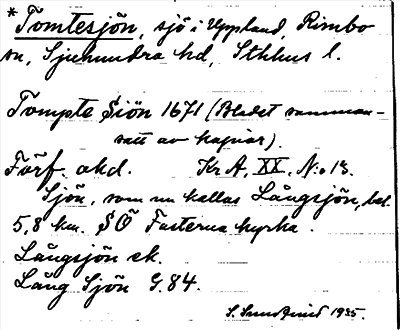 *Tomtesjön, sjö i Uppland, Rimbo
sn, Sjuhundra hd, Sthlms l.
Tompte Siön 1671 (Bladet samman-
satt av kopior).
Förf. okd. Kr A, XX, N:o 13.
Sjön, som nu kallas Långsjön, bel.
5,8 km. SÖ Fasterna kyrka.
Långsjön ek.
Lång Sjön G. 84.
S. Sundquist 1935.